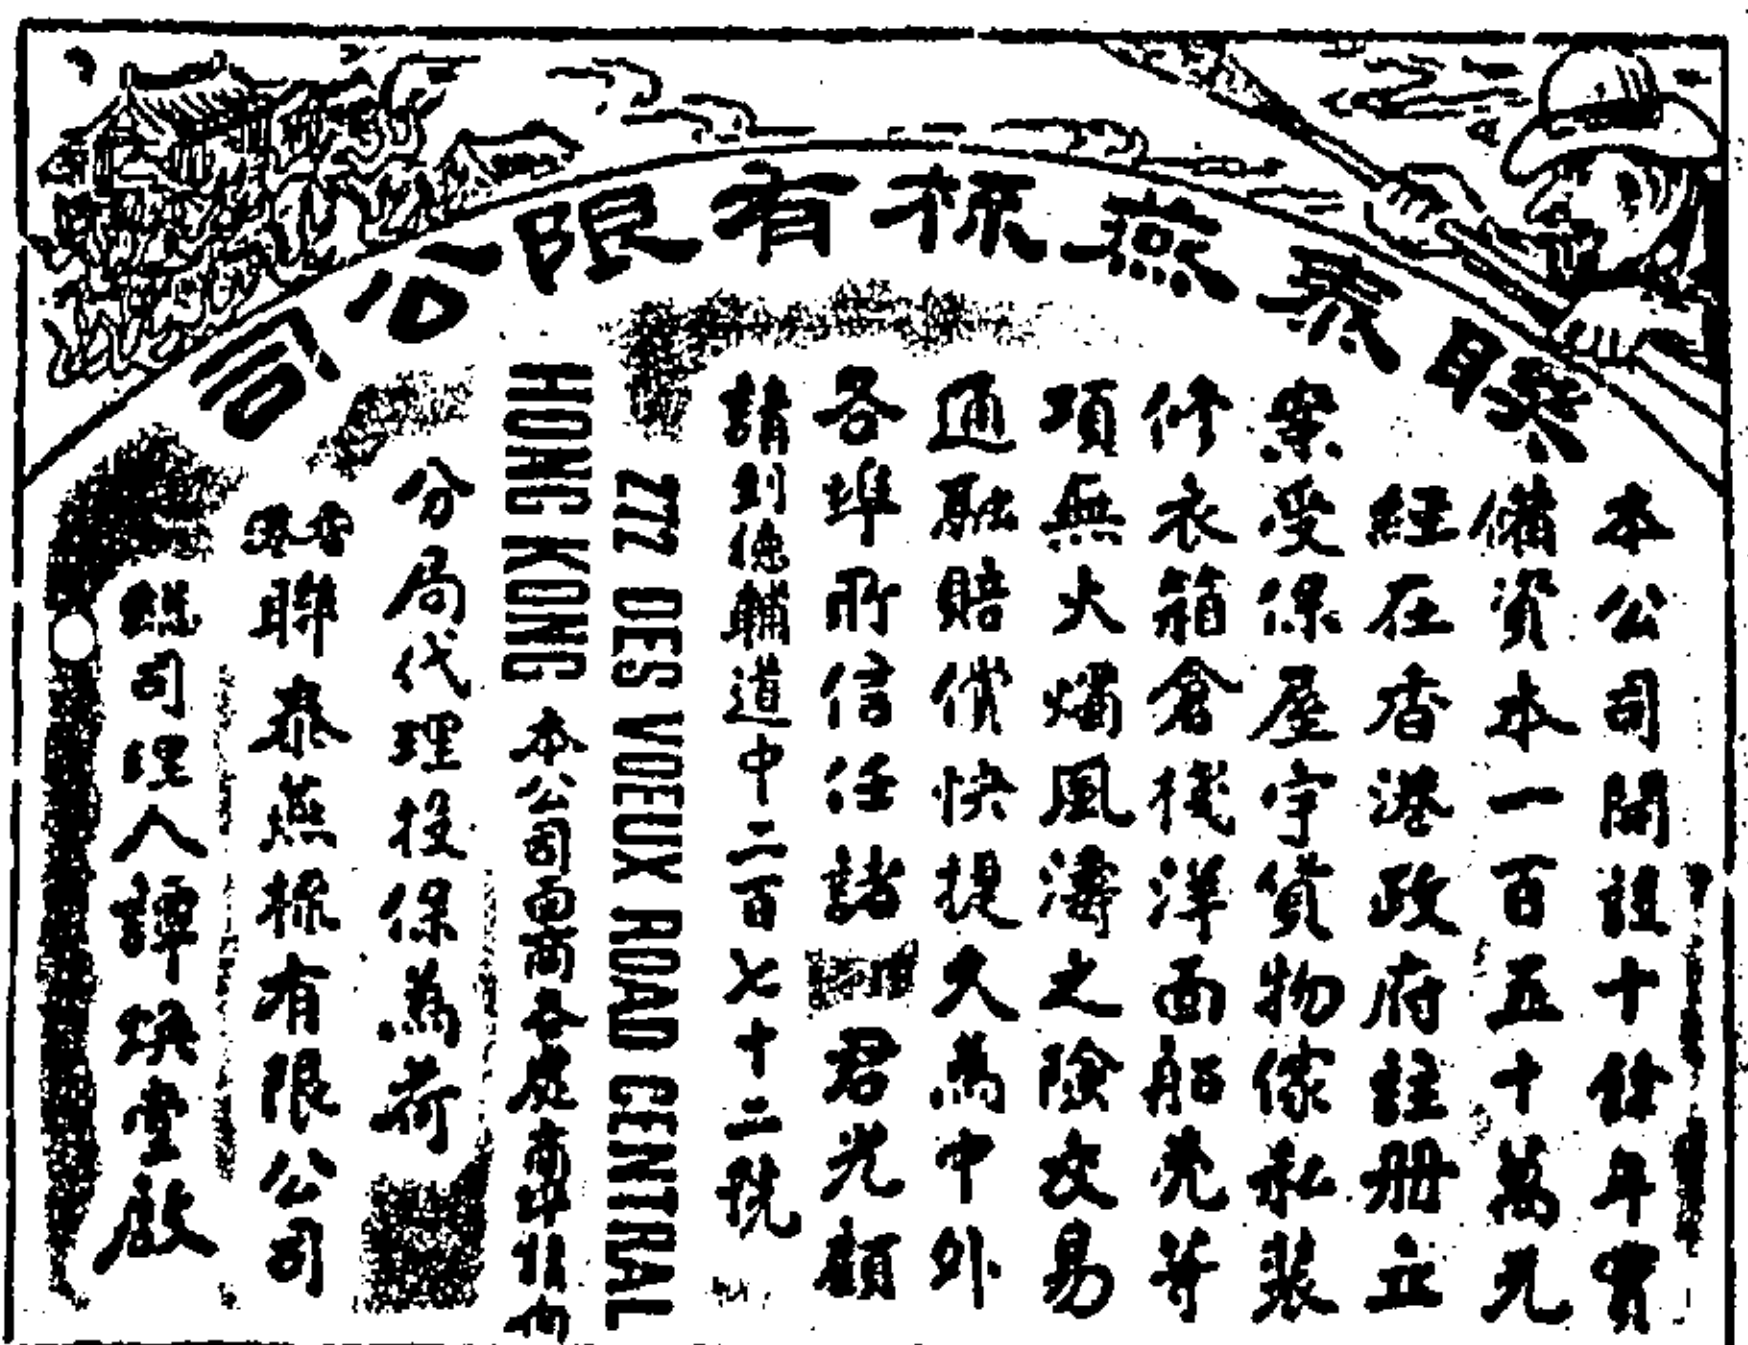 聯泰燕梳有限公司
本公司開設十餘年實
備資本一百五十萬元
經在香港政府註冊立
案受保屋宇貨物傢私裝
修衣箱倉棧洋面船壳等
項無火燭風濤之險交易
通融賠償快捷久為中外
各埠所信任諸君光顧
請到德輔道中二百七十二號
272 DES VOEUX ROAD CENTRAL
HONG KONG 本公司各處商埠請向
分局代理投保為荷
香港聯泰燕梳有限公司
總司理人譚煥堂啟